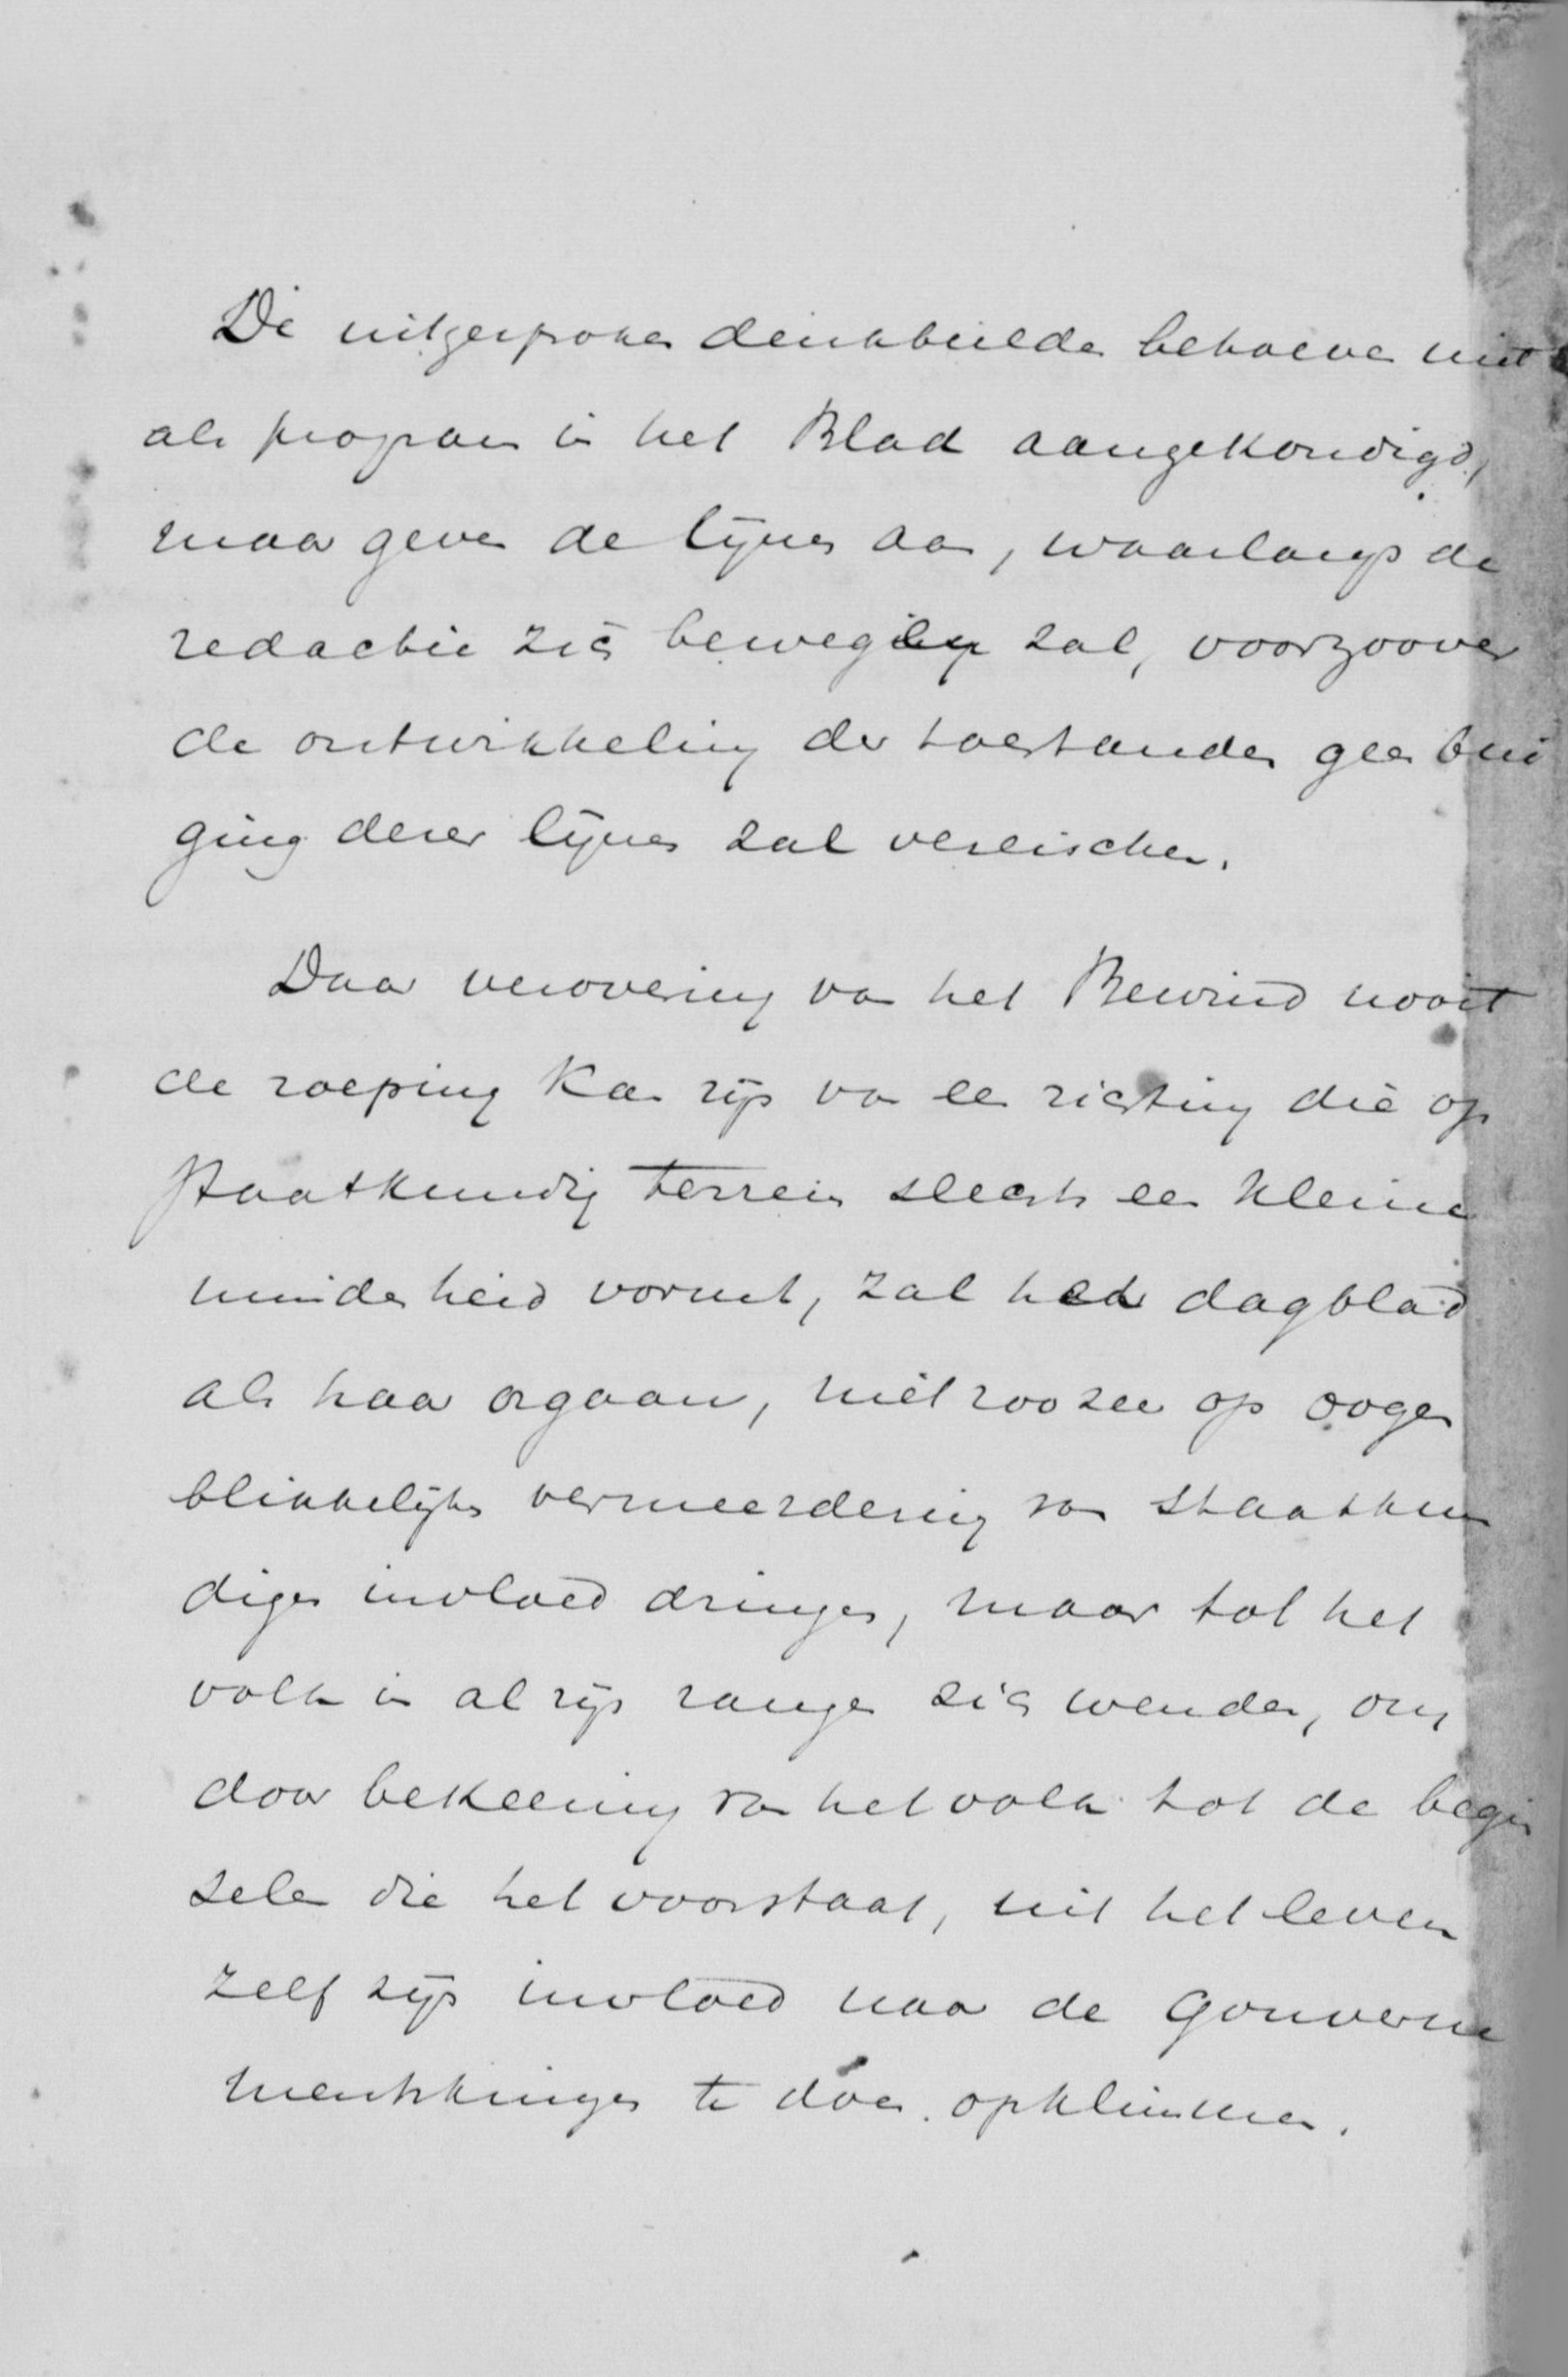 De uitgesproken denkbeelden behoeven niet
als program in het Blad aangekondigd,
maar geven de lijnen aan, waarlangs de
redactie zich bewegen zal, voorzoover
de ontwikkeling der toestanden geen bui
ging dezer lijnen zal vereischen.
Daar verovering van het Bewind nooit
de roeping kan zijn van een richting die op
staatkundig terrein slechts een kleine
minderheid vormt, zal het dagblad
als haar orgaan, niet zoozeer op oogen
blikkelijke vermeerdering van staatkun
digen invloed dringen, maar tot het
volk in al zijn rangen zich wenden, om
door bekeering van het volk tot de begin
selen die het voorstaat, uit het leven
zelf zijn invloed naar de Gouverne
mentskringen te doen opklimmen.